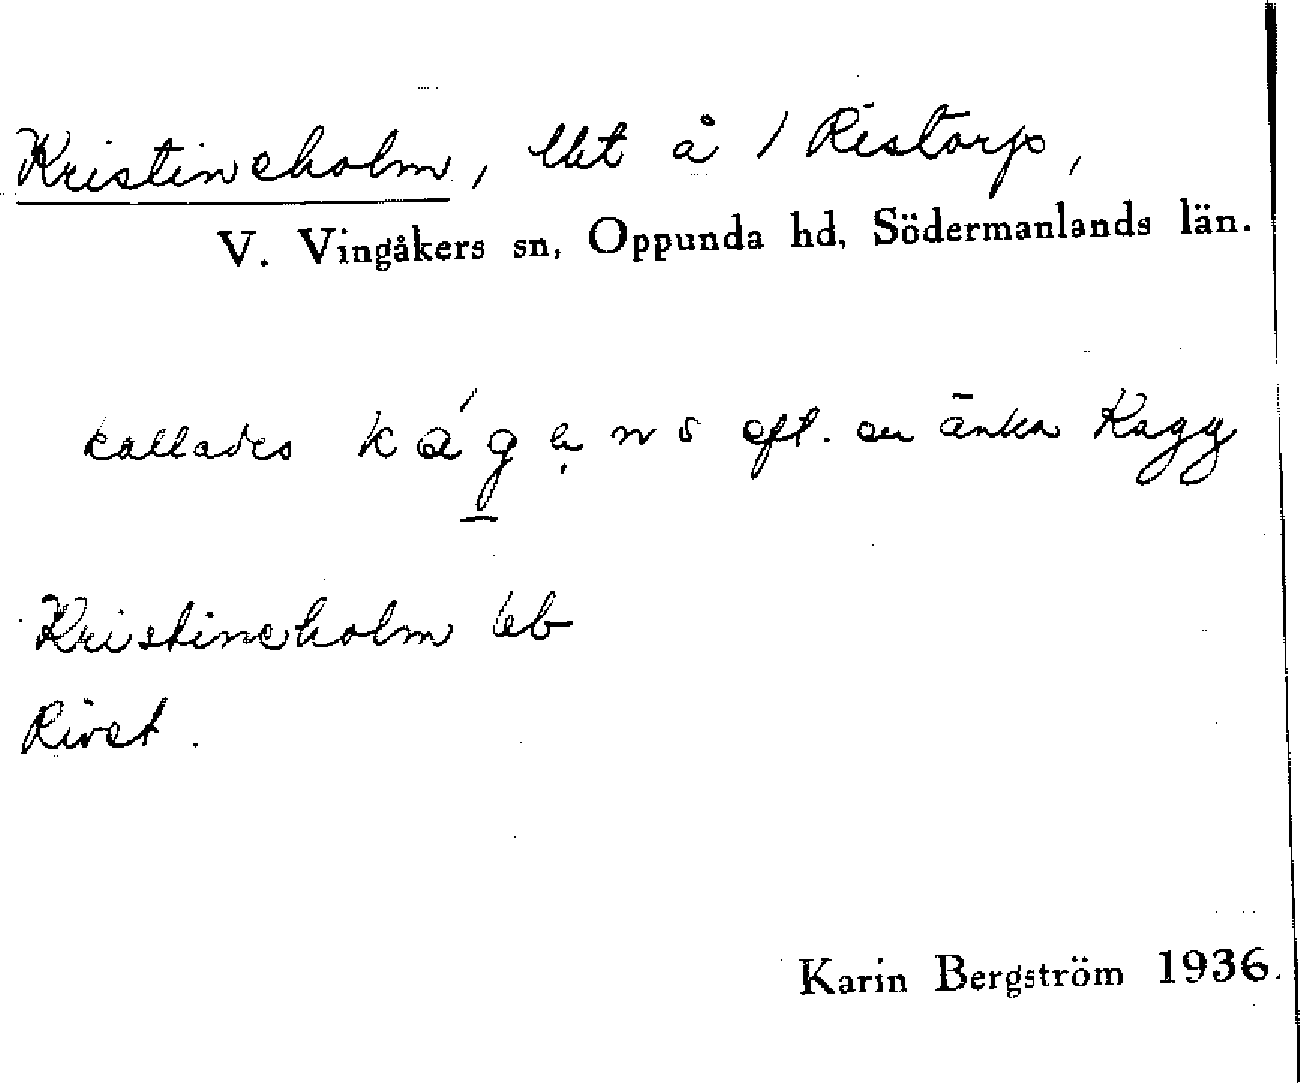 Kristineholm, lht å 1 Ristorp,
V. Vingåkers sn, Oppunda hd, Södermanlands län.
kallades kágans eft. en änka Kagg
Kristineholm eb
Rivet.
Karin Bergström 1936.